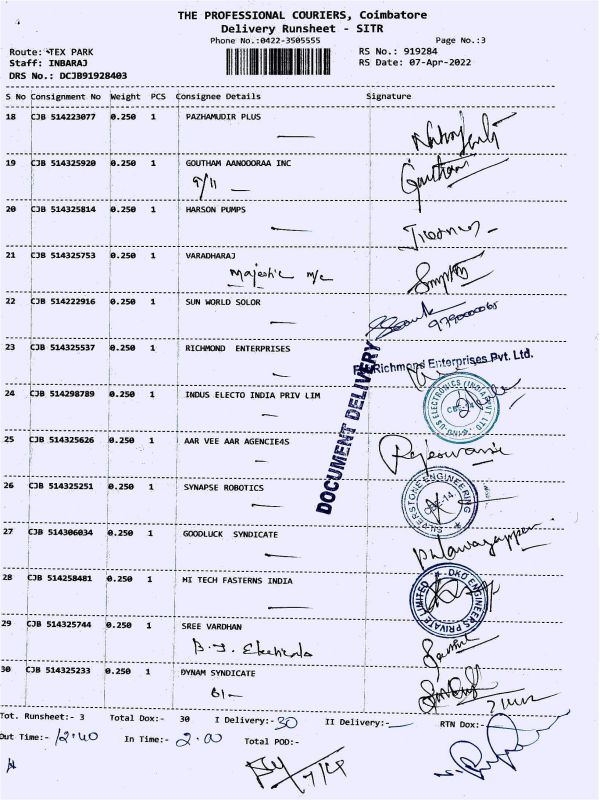 THE PROFESSIONAL COURIERS, Coimbatore
Delivery Runsheet - SITR
Phone No.:0422-3505555 Page No.:3
Route: TEX PARK RS No.: 919284
Staff: INBARAJ RS Date: 07-Apr-2022
DRS No.: DCJB91928403
S No Consignment No Weight PCS Consignee Details Signature
18 CJB 514223077 0.250 1 PAZHAMUDIR PLUS
19 CJB 514325920 0.250 1 GOUTHAM AANOOORAA INC
9/11 Goutham
20 CJB 514325814 0.250 1 HARSON PUMPS
21 CJB 514325753 0.250 1 VARADHARAJ
Majestic m/c
22 CJB 514222916 0.250 1 SUN WORLD SOLOR
23 CJB 514325537 0.250 1 RICHMOND ENTERPRISES
Richmond Enterprises Pvt. Ltd.
DOCUMENT DELIVERY
24 CJB 514298789 0.250 1 INDUS ELECTO INDIA PRIV LIM
25 CJB 514325626 0.250 1 AAR VEE AAR AGENCIE4S
Rajeswarie
26 CJB 514325251 0.250 1 SYNAPSE ROBOTICS
SILVERSTONE ENGINEERING
27 CJB 514306034 0.250 1 GOODLUCK SYNDICATE
28 CJB 514258481 0.250 1 HI TECH FASTERNS INDIA
DKD ENGINEERS PRIVATE LIMITED
29 CJB 514325744 0.250 1 SREE VARDHAN
30 CJB 514325233 0.250 1 DYNAM SYNDICATE
Tot. Runsheet:- 3 Total Dox:- 30 I Delivery:- 30 II Delivery:- RTN Dox:-
Out Time:- 12.40 In Time:- 2.00 Total POD:-